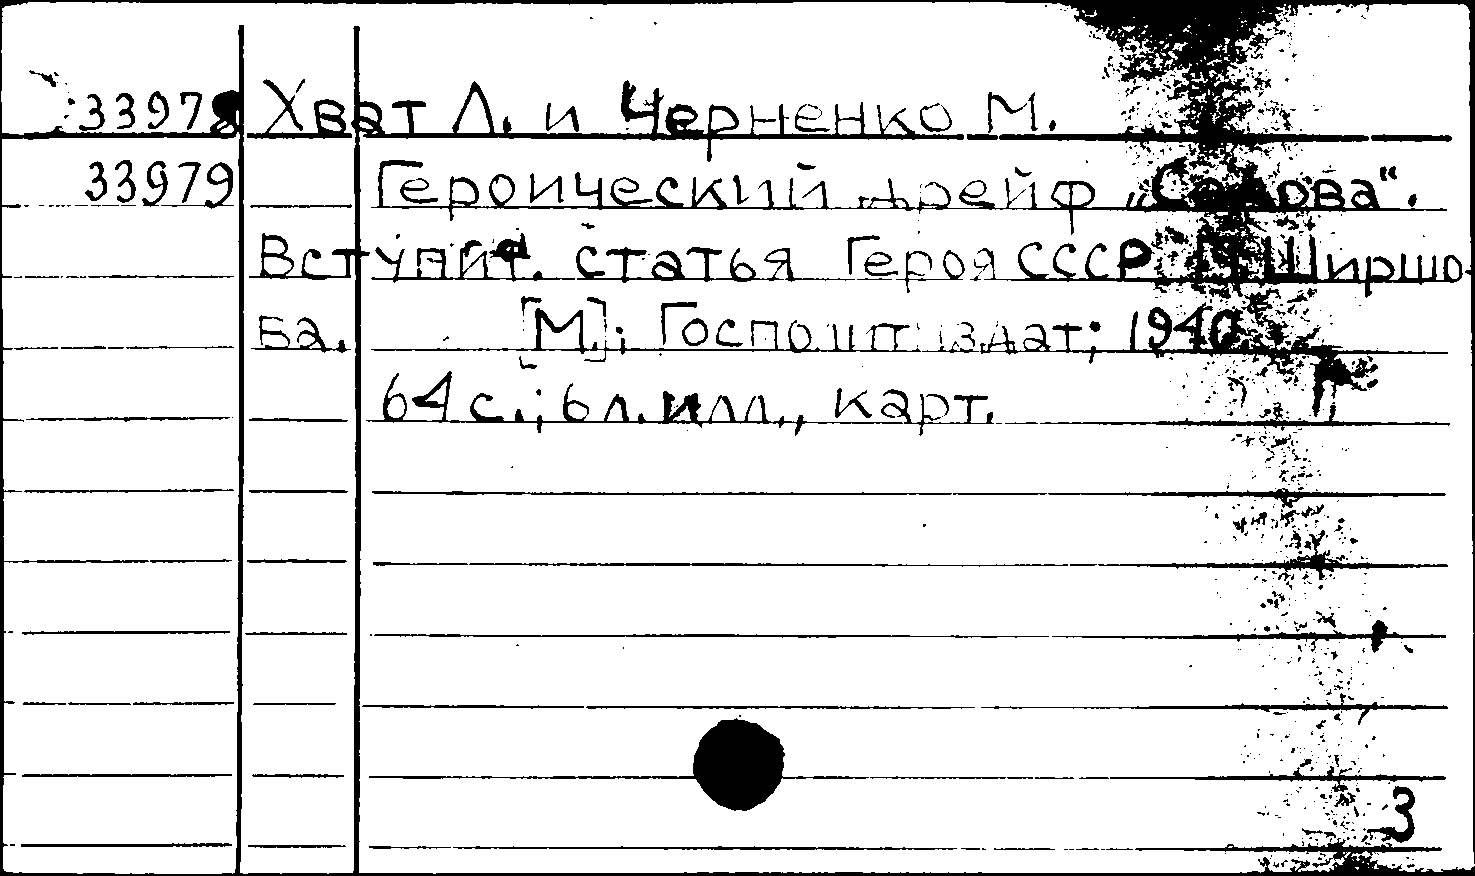 33978 Хват Л. и Черненко М.
33979 Героический дрейф „Седова“.
Вступит. статья Героя СССР П. Ширшо-
ва. [М]; Госполитиздат; 1940.
64 с.; 6 л. илл., карт. П
3